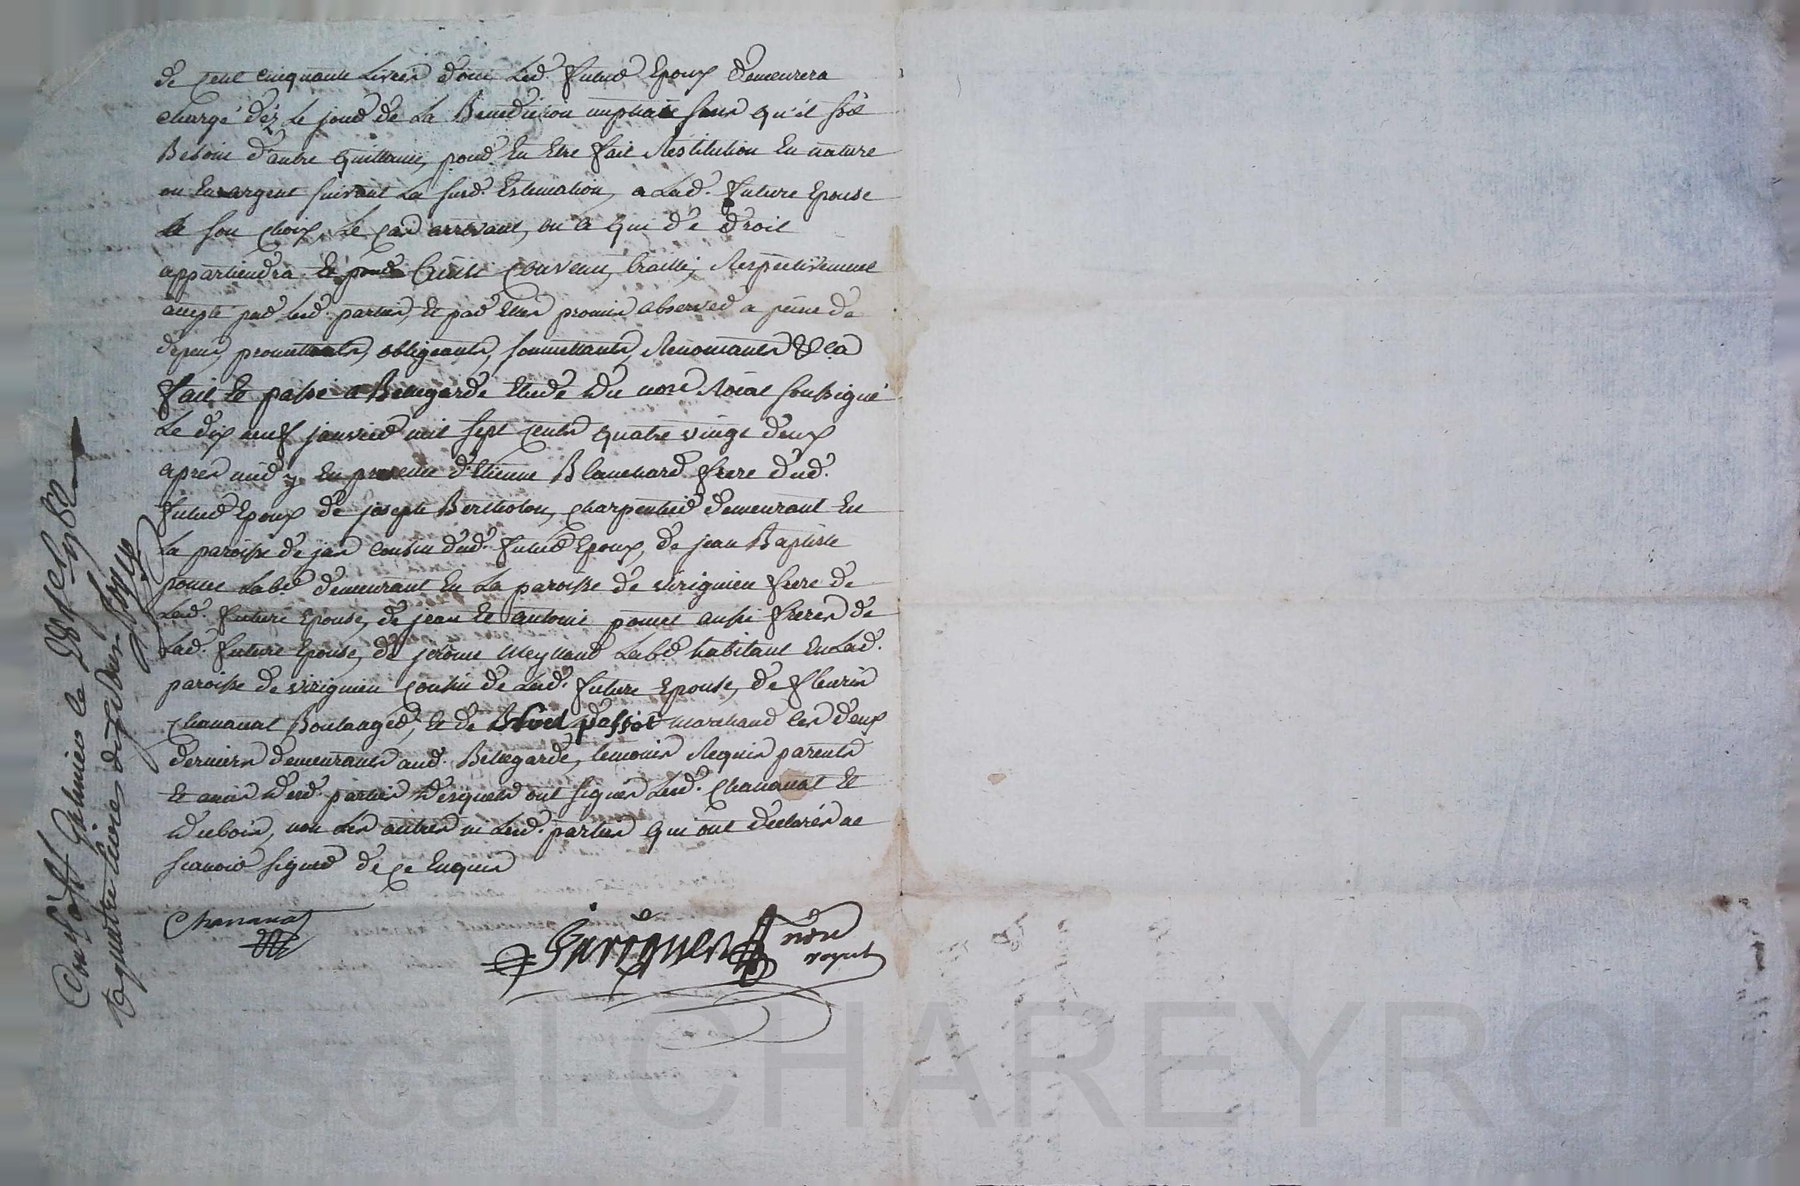 de Cent Cinquante Livres dont Led. Futur Epoux demeurera
chargé dès le jour de La Benediction nuptiale sans qu'il soit
Besoin d'autre Quittance, pour En Etre fait Restitution En nature
ou En argent suivant La susd. Estimation, a Lad. Future Epouse
a son choix, Le Cas arrivant, ou a Qui de droit
appartiendra Et Convenu, traitté, Respectivement
accepté par Lesd. parties, Et par Elles promis observer a peine de
depens, promettants, obligeants, soumettants, Renonceants &ca
Fait Et passé a Bellegarde Etude du nore Roial soussigné
Le dix neuf janvier mil sept Cents Quatre vingt deux
apres midy En presence d'Etienne Blanchard frere dud.
Futur Epoux de joseph Bertholon, charpentier demeurant En
La paroisse de jas Cousin dud. Futur Epoux, de jean Baptiste
poncet Labr demeurant En La paroisse de virignieu frere de
Lad. Future Epouse, de jean Et antoine poncet aussi freres de
Lad. Future Epouse, de jerôme Meyland Labr habitant En Lad.
paroisse de virignieu Cousin de Lad. Future Epouse, de fleuris
Chananat Boulanger, Et de marchand les deux
derniers demeurants aud. Bellegarde, temoins Requis parents
Et amis desd. parties desquels ont signés Led. Chananat Et
Duboin, non Les autres ni Lesd. parties Qui ont déclarés ne
scavoir signer de Ce Enquis
Chananat
nore
royal
Conlé a St Galmier le
quatre livres